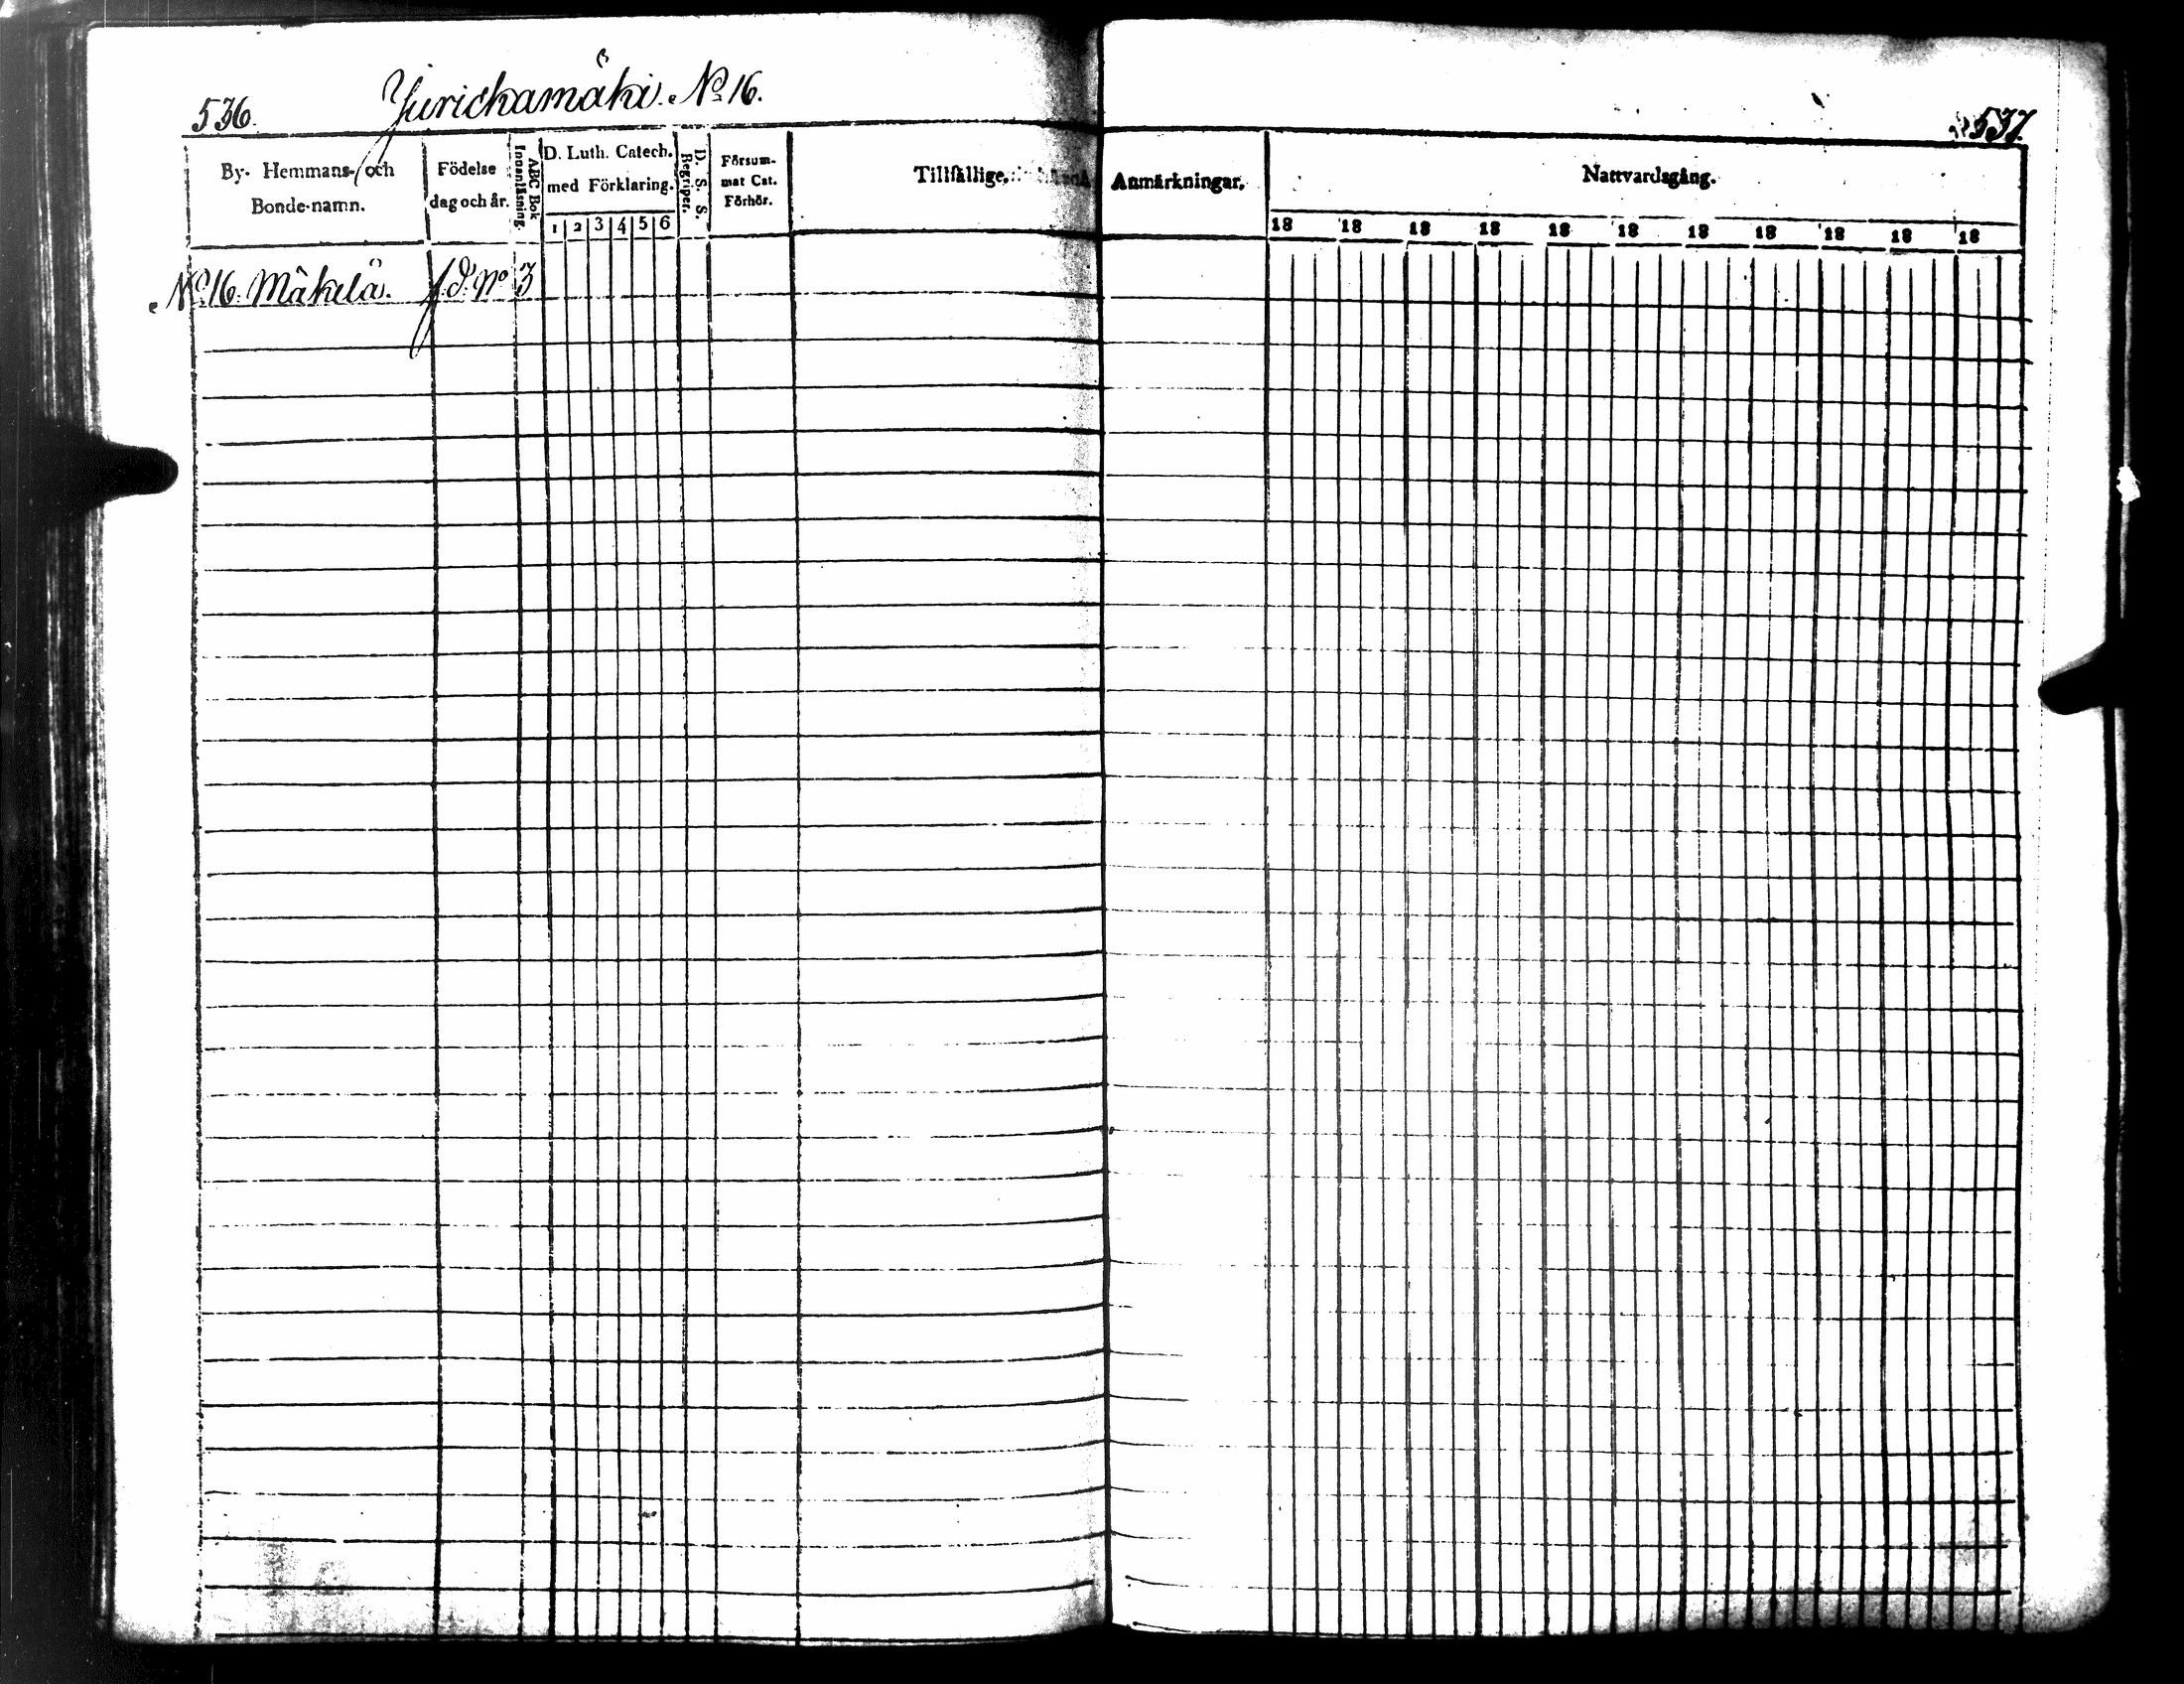 536. Jurickamäki. No 16.
537.
By- Hemmans- och Bonde-namn.
Födelse dag och år.
ABC Bok Innanläsning.
D. Luth. Catech. med Förklaring.
1 2 3 4 5 6
D. S. S. Begriper.
Försum- mat Cat. Förhör.
Tillfällige,
Anmärkningar.
Nattvardsgång.
18 18 18 18 18 18 18 18 18 18 18
No 16. Mäkelä.
No 3